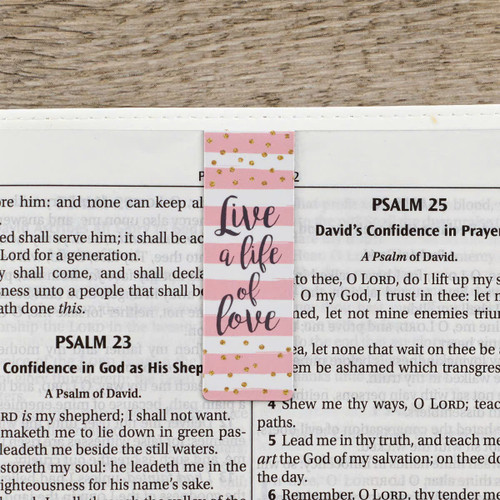 Live
a life
of
love
ore him: and none can keep al
ed shall serve him; it shall be ac
Lord for a generation.
y shall come, and shall decla
ness unto a people that shall b
ath done this.
PSALM 23
Confidence in God as His Shep
A Psalm of David.
RD is my shepherd; I shall not want.
maketh me to lie down in green pas-
leadeth me beside the still waters.
storeth my soul: he leadeth me in the
righteousness for his name's sake.
PSALM 25
David's Confidence in Prayer
A Psalm of David.
to thee, O LORD, do I lift up my s
O my God, I trust in thee let n
ned, let not mine enemies triun
ea, let none that wait on thee be
em be ashamed which transgres
4 Shew me thy ways, O LORD; teac
paths.
5 Lead me in thy truth, and teach me
art the God of my salvation; on thee do
the day.
6 Remember, O LORD, thy tender m